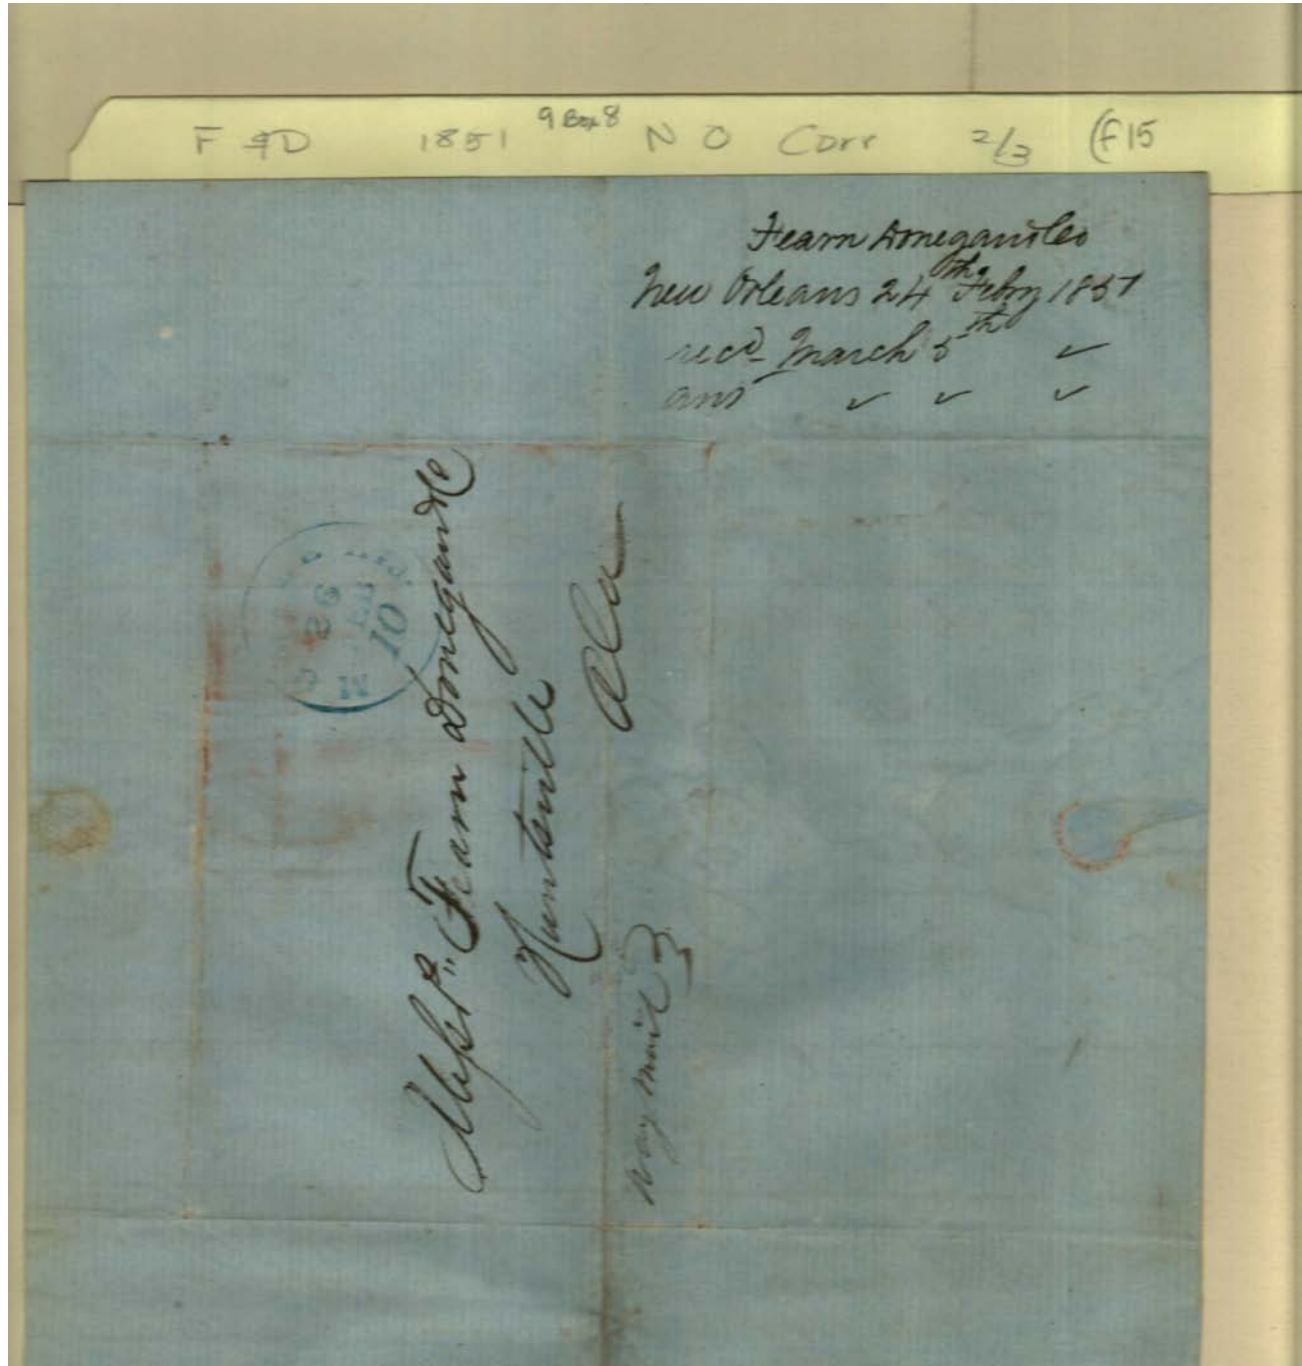 F &D 1851 9 Box 8 N O Corr 2/3 (F15
Fearn Donegan & Co
New Orleans 24th Feby 1851
recd March 5th ✓
ans ✓ ✓ ✓
Messrs Fearn Donegan & Co
Huntsville
Ala
way mail
10